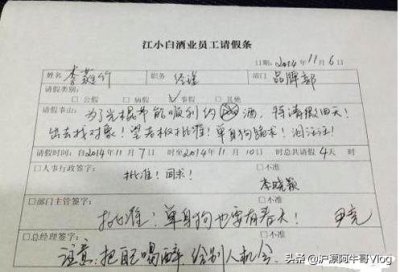 江小白酒业员工请假条
日期：2014年11月6日
姓名 李 职务 经理 部门 品牌部
请假类别：
□公假 □病假 ☑事假 □其他
请假事由：为了光棍节能顺利约酒，特请假四天！
出去找对象！望吉批准！单身狗请求！
请假时间：自2014年11月7日至2014年11月10日 时总共请假4天 时
□人事行政签字： □不准
批准！同求！ 李
□部门主管签字： □不准
批准！单身狗也要有春天！ 尹亮
□总经理签字： □不准
注意：把自己喝醉，给别人机会。
头条@沪漂阿牛哥Vlog